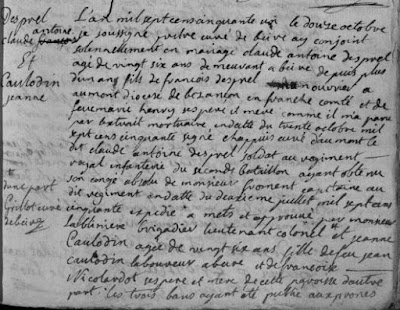 Desprel
claude antoine
Et
Caulodin
jeanne
L'an mil sept cens cinquante un le douze octobre
je soussigné curé de ai conjoint
solennellement en mariage claude antoine desprel
agé de vingt six ans demeurant a de puis plus
d'un ans fils de francois desprel ouvrier a
aumont diocese de besançon en franche comté et de
feue marie henry ses pere et mere comme il m'a paru
par l'extrait mortuaire en datte du trente octobre mil
sept cens cinquante signé chappuis curé d'aumont le
dit claude antoine desprel soldat au regiment
royal infanterie du second bataillon ayant obtenu
son congé absolu de monsieur froment capitaine au
dit regiment en datte du deuxieme juillet mil sept cens
cinquante expedié a mets et approuvé par monsieur
brigadier lieutenant colonel et jeanne
Caulodin agée de vingt six ans fille de feu jean
caulodin laboureur a et de francoise
Nicolardot ses pere et mere de cette paroisse d'autre
part les trois bans ayant été publié aux prones
d'une part
curé